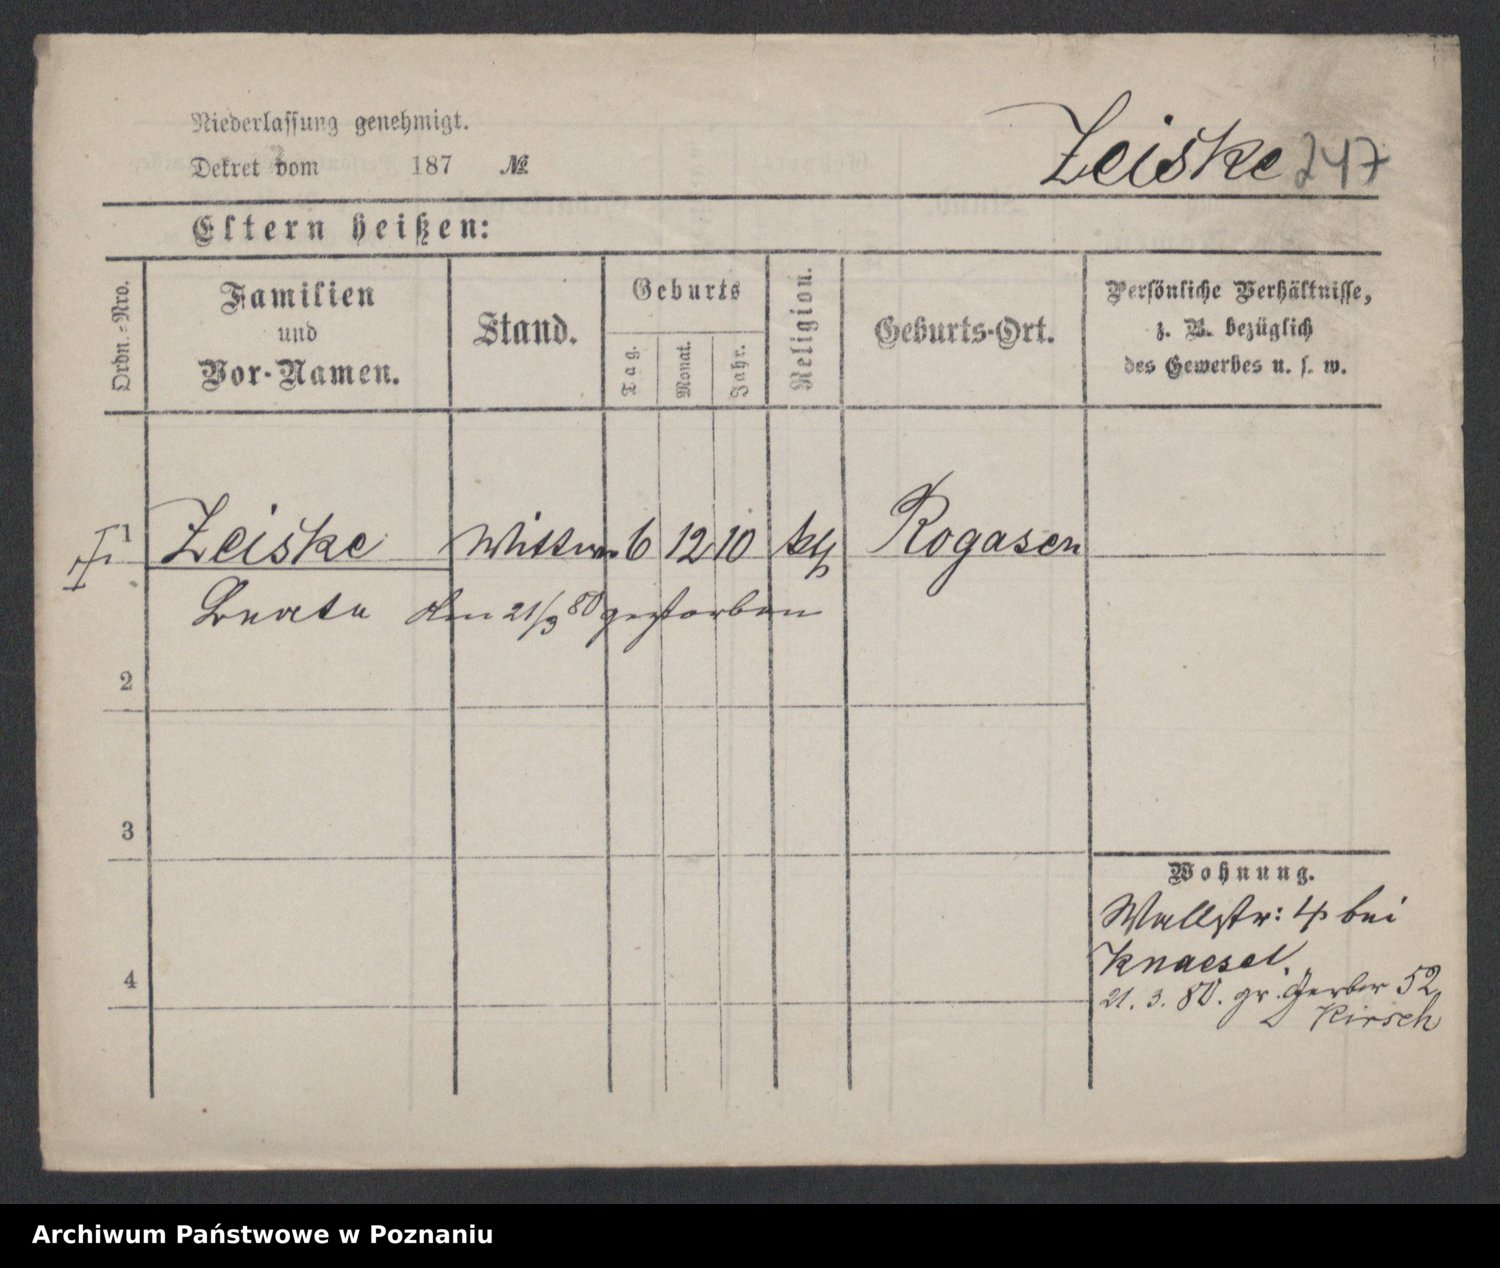 Niederlassung genehmigt.
Dekret vom 187 №
Zeiske 247
Eltern heißen:
Ordn.-Nro.
Familien
und
Vor-Namen.
Stand.
Geburts
Tag.
Monat.
Jahr.
Religion.
Geburts-Ort.
Persönliche Verhältnisse,
z. B. bezüglich
des Gewerbes u. s. w.
1 Zeiske Wittwe 6 12 10 kth Rogasen
Beate den 21/3 80 gestorben
2
3
4
Wohnung.
Wallstr: 4 bei
Knaesel.
21. 3. 80. gr. Gerber 52
Kirsch
Archiwum Państwowe w Poznaniu